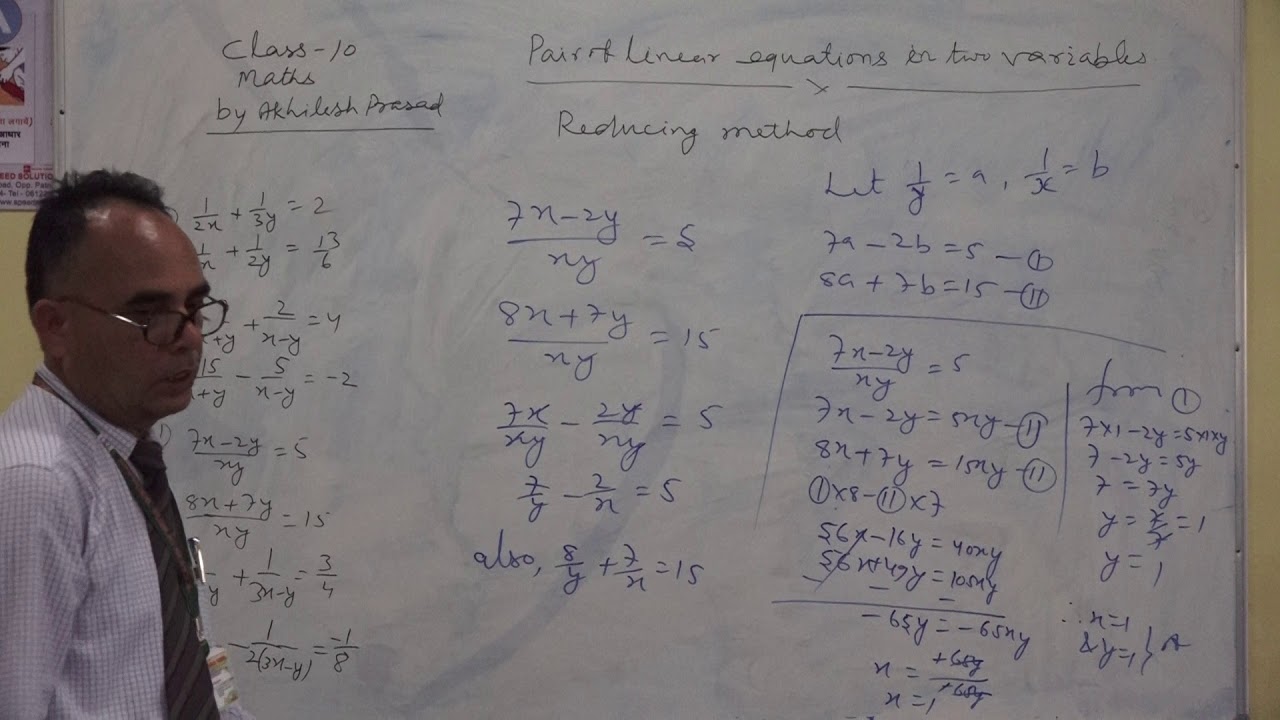 Class-10
Maths
by Akhilesh Prasad
Pair of linear equations in two variables
Reducing method
1/2x + 1/3y = 2
1/x + 1/2y = 13/6
+y + 2/x-y = 4
15/+y - 5/x-y = -2
7x-2y/xy = 5
8x+7y/xy = 15
y + 1/3x-y = 3/4
- 1/2(3x-y) = -1/8
7x-2y/xy = 5
8x+7y/xy = 15
7x/xy - 2y/xy = 5
7/y - 2/x = 5
also, 8/y + 7/x = 15
Let 1/y = a, 1/x = b
7a - 2b = 5 - (I)
8a + 7b = 15 - (II)
7x-2y/xy = 5
7x - 2y = 5xy - (II)
8x + 7y = 15xy - (II)
(I)x8 - (II)x7
56x - 16y = 40xy
56x + 49y = 105xy
- - -
-65y = -65xy
x = +65y/+65y
x = 1
from (I)
7x1 - 2y = 5x1xy
7 - 2y = 5y
7 = 7y
y = 7/7 = 1
y = 1
∴ x = 1
& y = 1 }
EED SOLUTIO